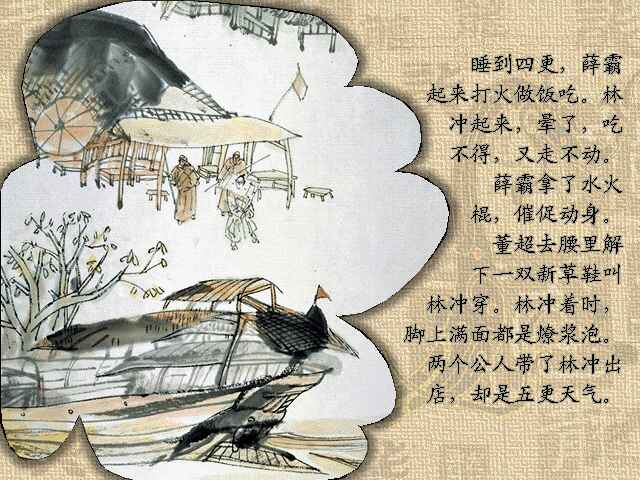 睡到四更，薛霸
起来打火做饭吃。林
冲起来，晕了，吃
不得，又走不动。
薛霸拿了水火
棍，催促动身。
董超去腰里解
下一双新草鞋叫
林冲穿。林冲着时，
脚上满面都是燎浆泡。
两个公人带了林冲出
店，却是五更天气。